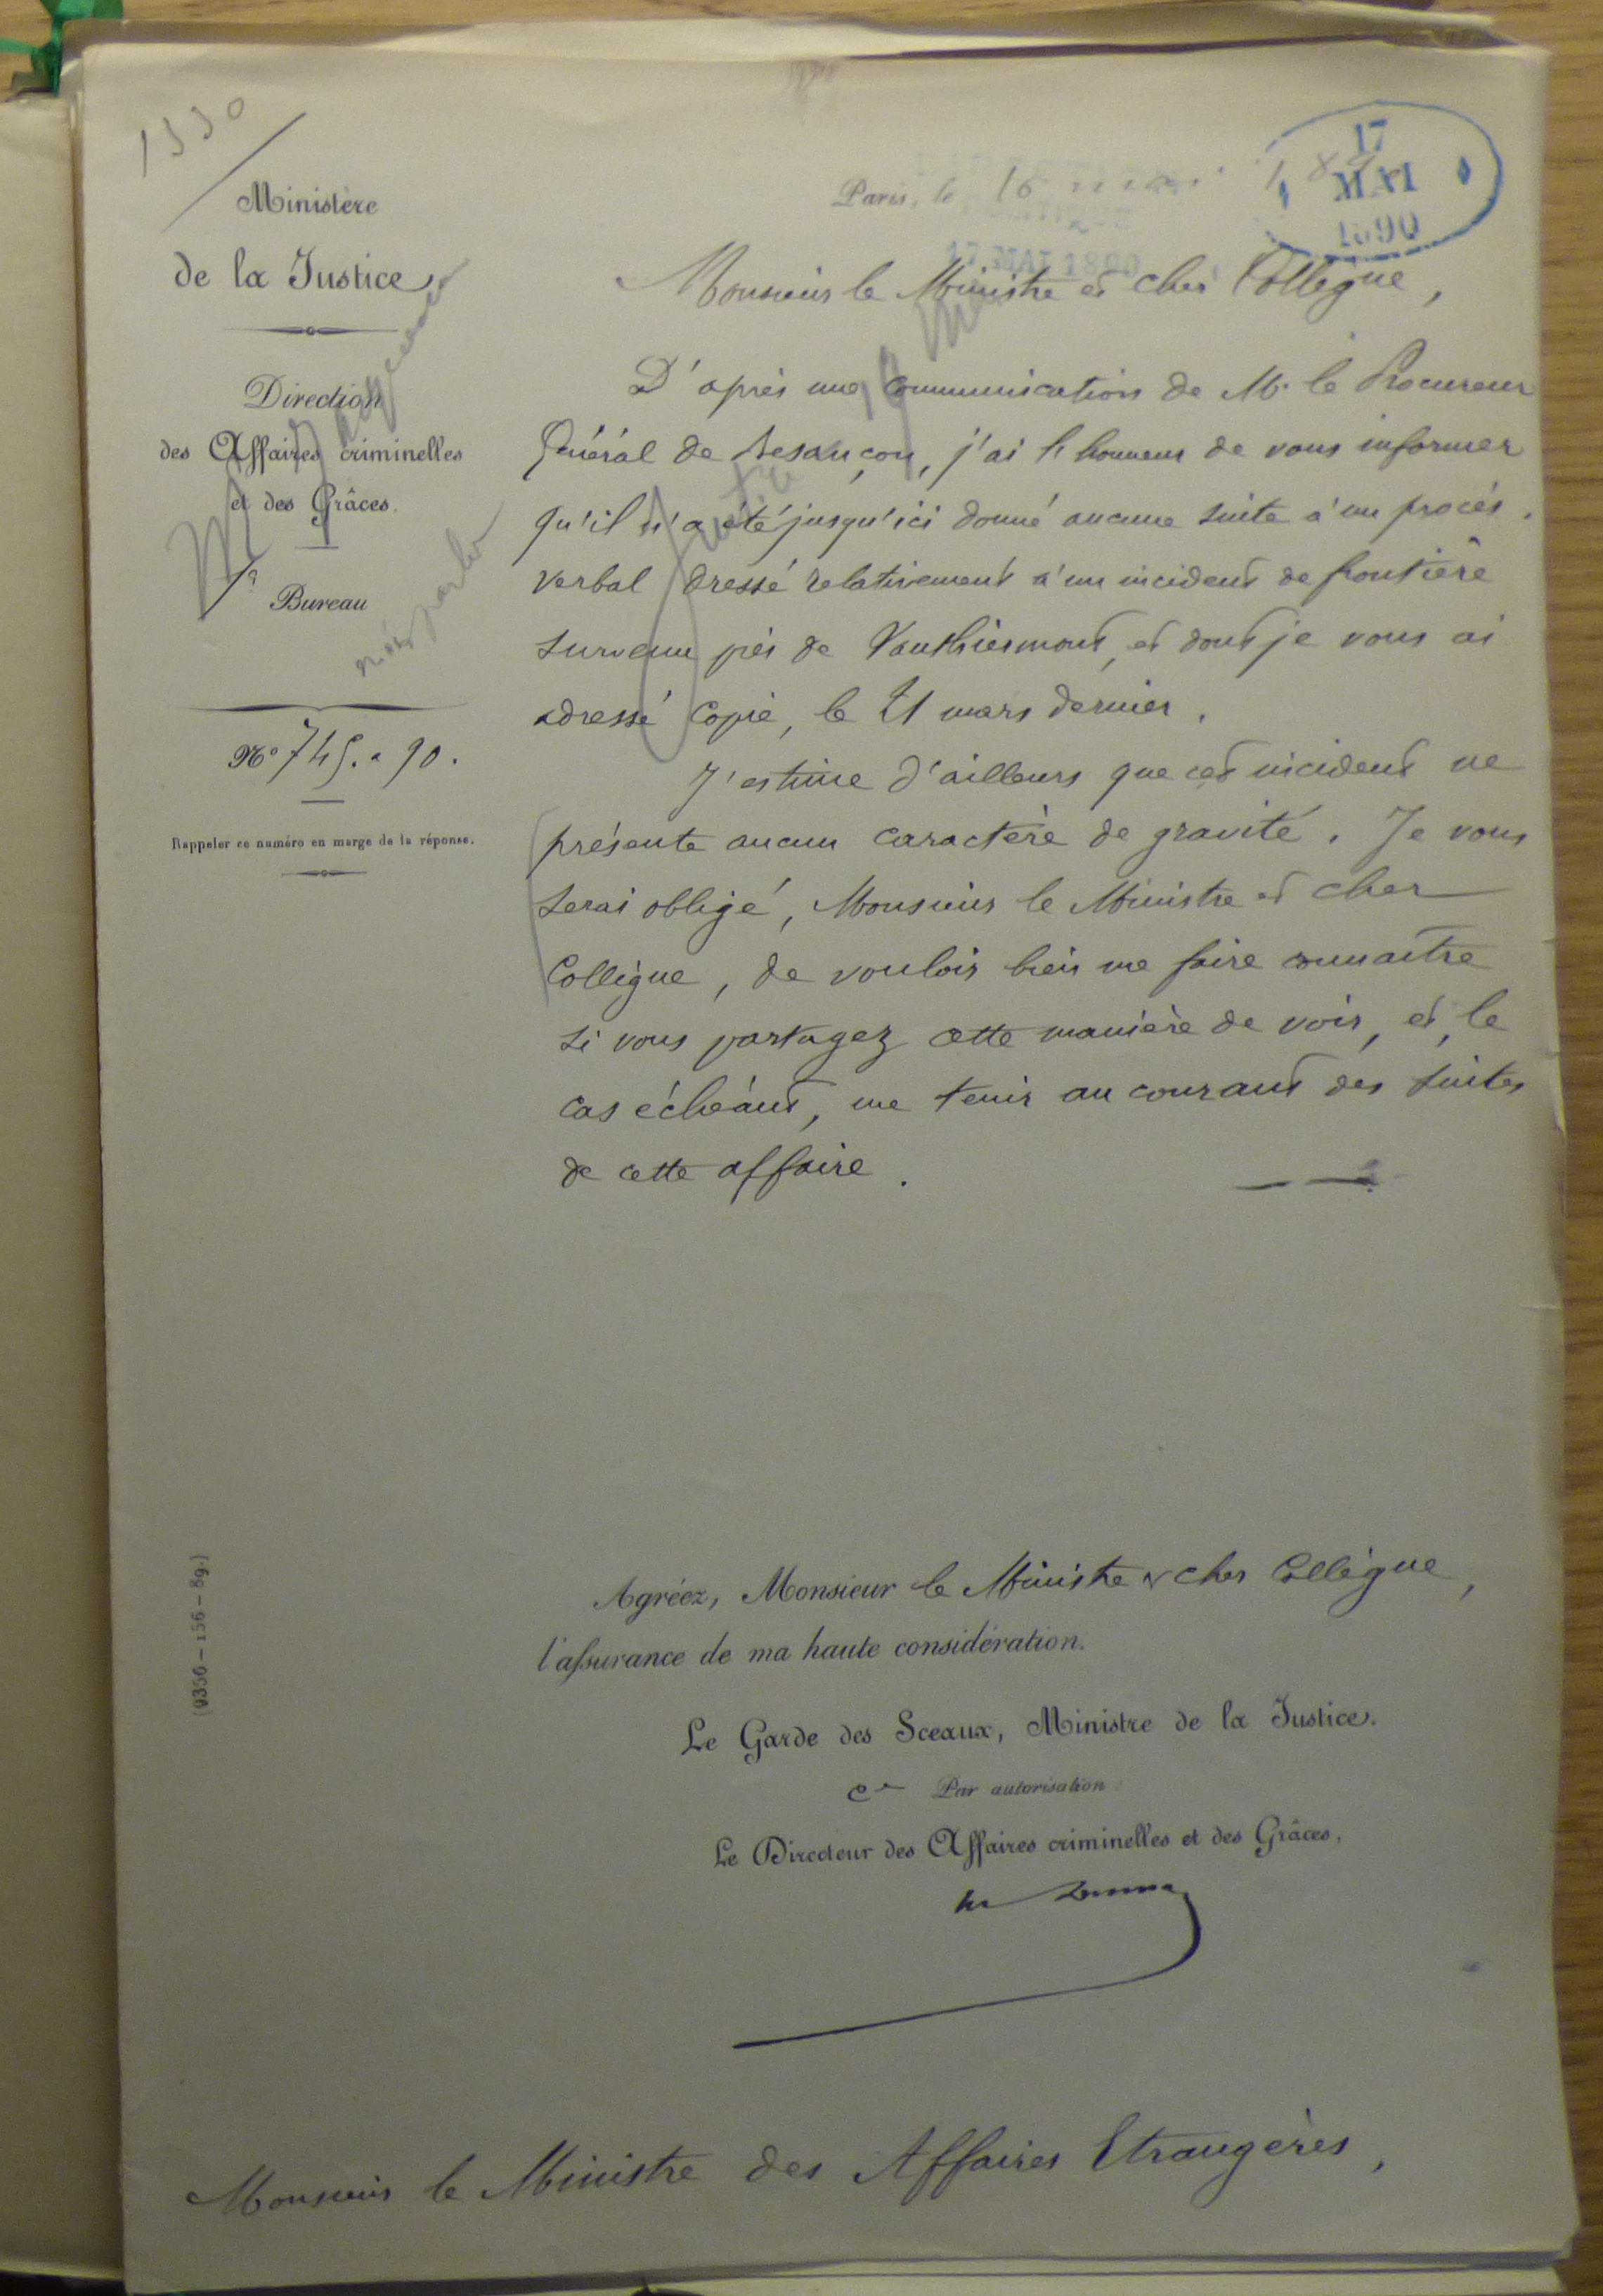 1330
Ministère
de la Justice
Direction
des Affaires criminelles
et des Grâces.
1er
Bureau
m'en parler
No 745. a 90.
Rappeler ce numéro en marge de la réponse.
Paris, le 16 mai 18
17
MAI
1890
17 MAI 1890
Monsieur le Ministre et cher Collègue,
D'après une communication de M. le Procureur
Général de Besançon, j'ai l'honneur de vous informer
qu'il n'a été jusqu'ici donné aucune suite à un procès-
verbal dressé relativement à un incident de frontière
survenu près de Vauthiermont, et dont je vous ai
adressé copie, le 21 mars dernier.
J'estime d'ailleurs que cet incident ne
présente aucun caractère de gravité. Je vous
serai obligé, Monsieur le Ministre et cher
Collègue, de vouloir bien me faire connaître
si vous partagez cette manière de voir, et, le
cas échéant, me tenir au courant des suites
de cette affaire.
(9356-156-89.)
Agréez, Monsieur le Ministre & cher Collègue,
l'assurance de ma haute considération.
Le Garde des Sceaux, Ministre de la Justice.
Par autorisation:
Le Directeur des Affaires criminelles et des Grâces,
Monsieur le Ministre des Affaires Etrangères,